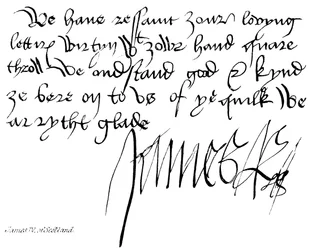 We haue ressauit zour loffyng
letter Virtyn Wt zour hand quare
throll We ondstand good & kynd
ze bere on to Vs of ye quilk We
ar rytht glade
James R
James IV. of Scotland.